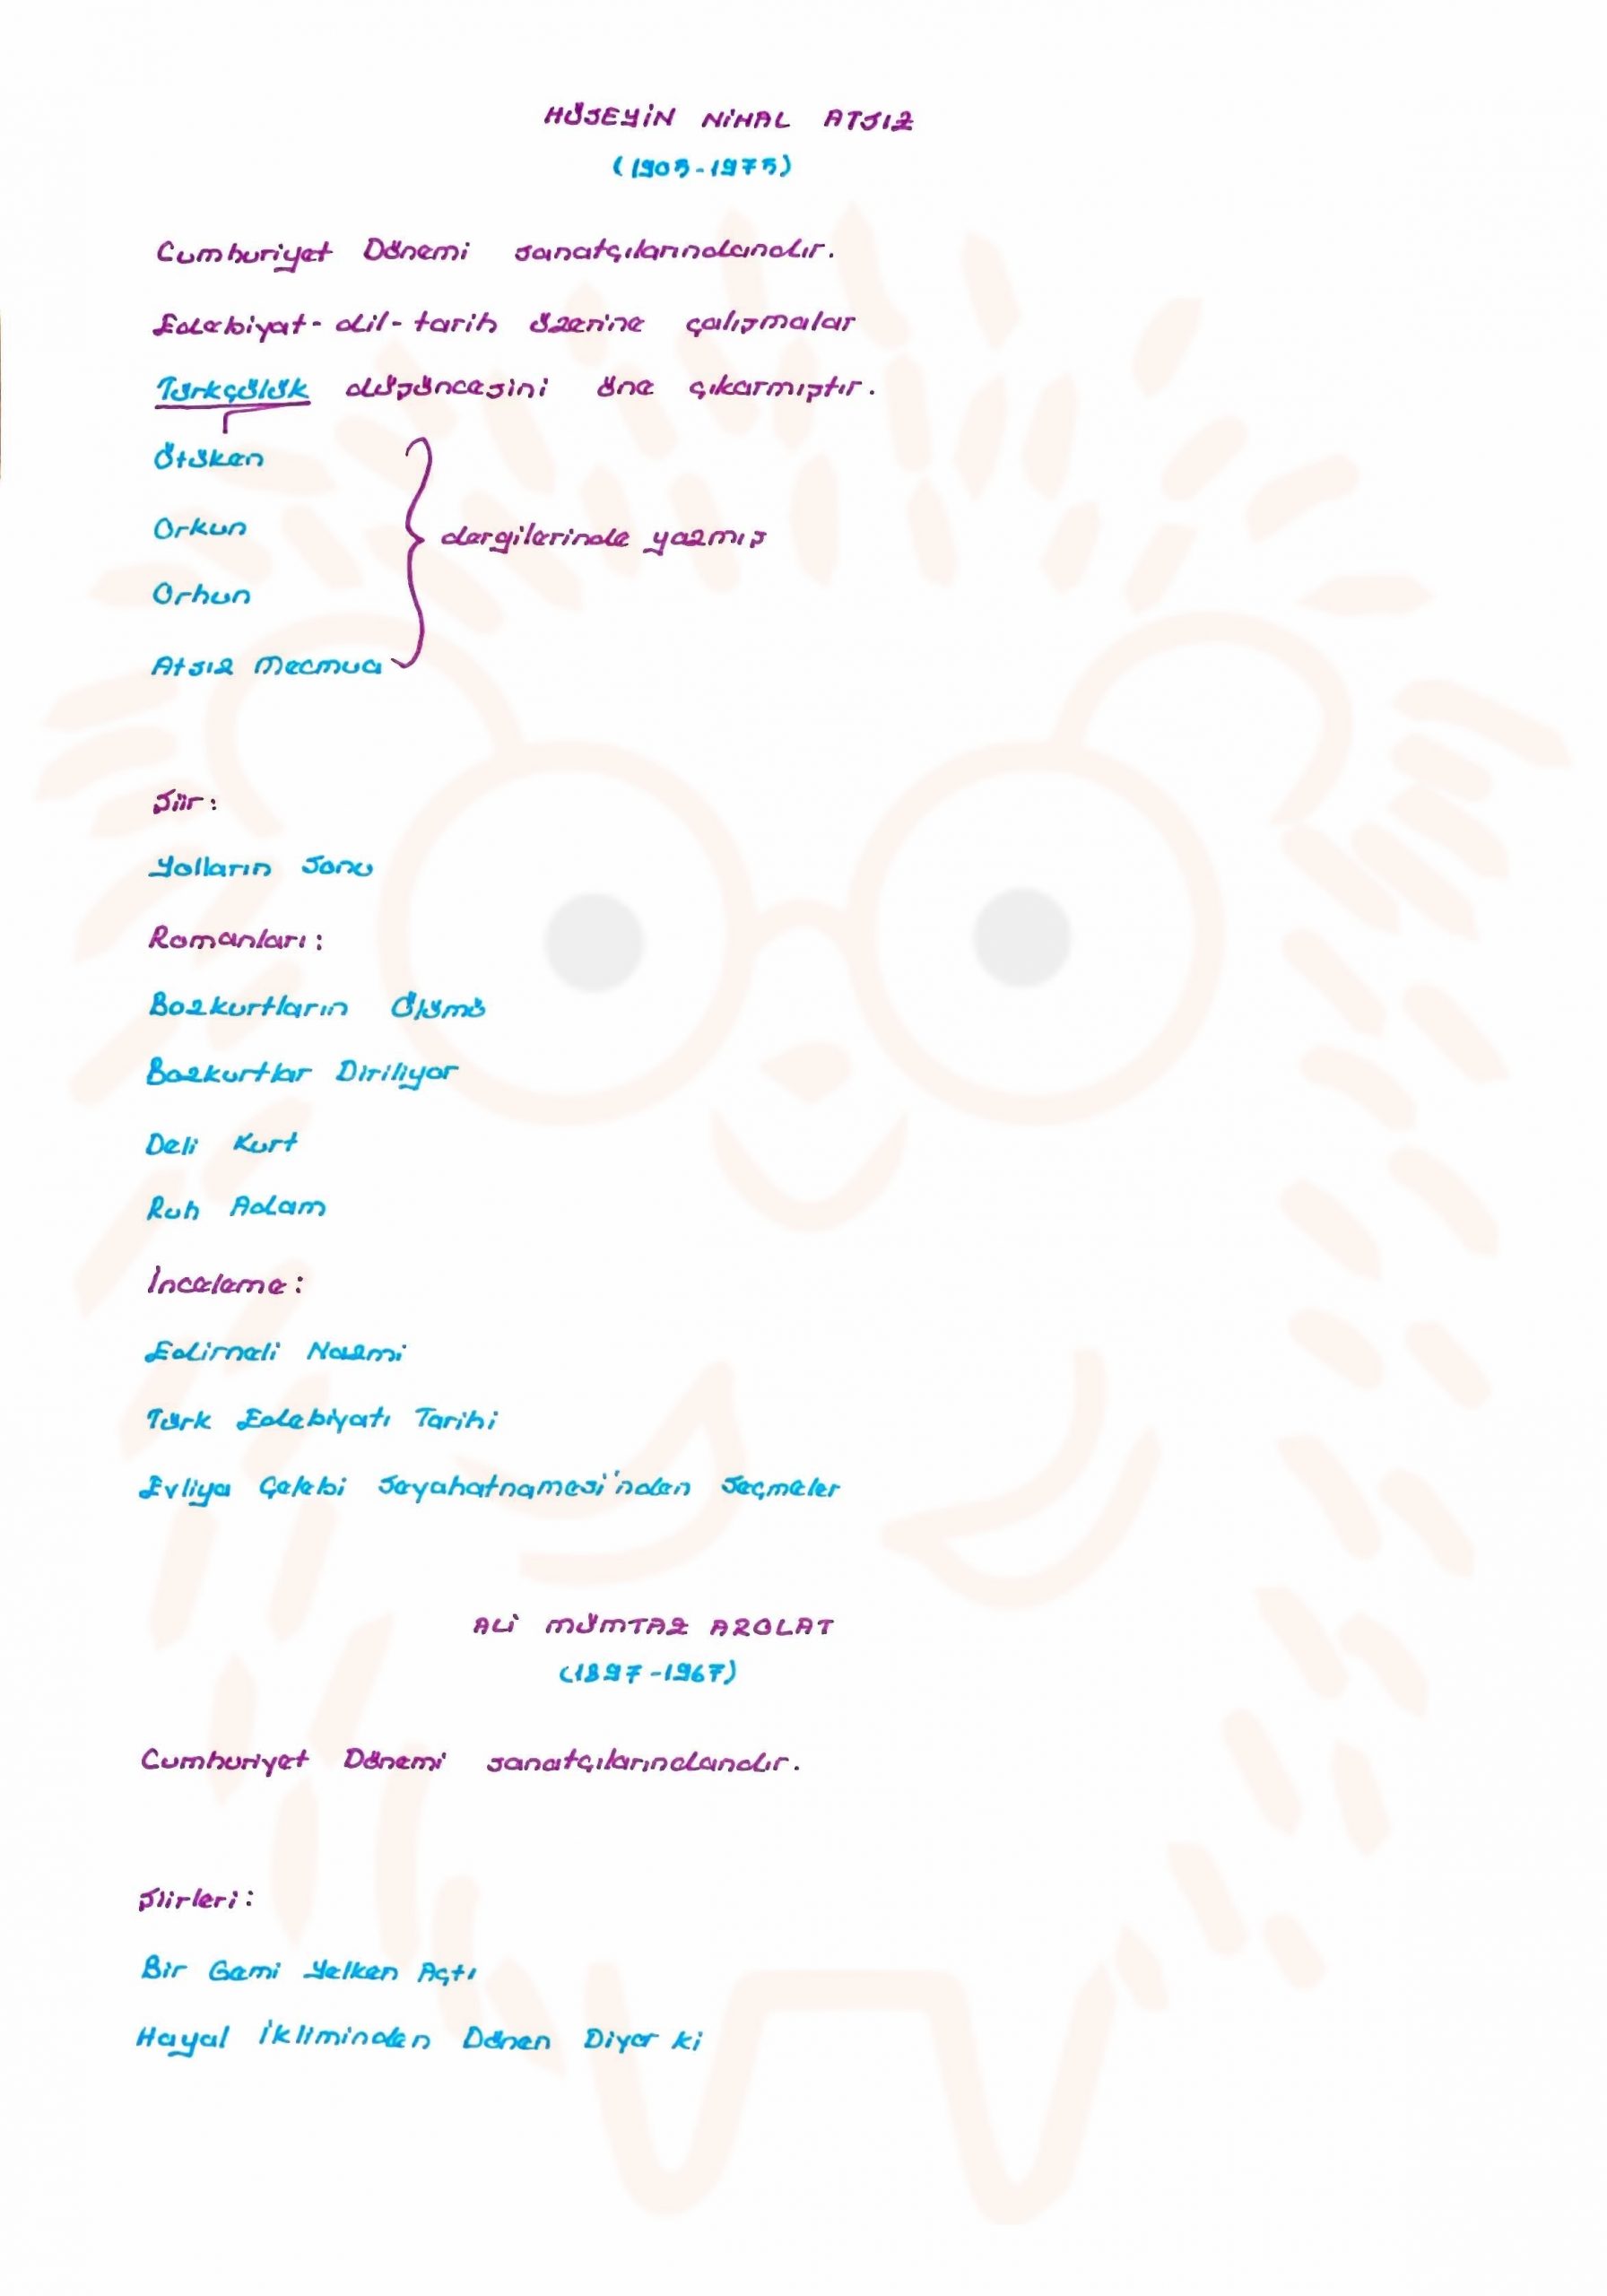 HÜSEYİN NİHAL ATSIZ
(1905-1975)
Cumhuriyet Dönemi sanatçılarındandır.
Edebiyat-dil-tarih üzerine çalışmalar
Türkçülük düşüncesini öne çıkarmıştır.
Ötüken
Orkun
dergilerinde yazmış
Orhun
Atsız Mecmua
Şiir:
Yolların Sonu
Romanları:
Bozkurtların Ölümü
Bozkurtlar Diriliyor
Deli Kurt
Ruh Adam
İnceleme:
Edirneli Nazmi
Türk Edebiyatı Tarihi
Evliya Çelebi Seyahatnamesi'nden Seçmeler
ALİ MÜMTAZ AROLAT
(1897-1967)
Cumhuriyet Dönemi sanatçılarındandır.
Şiirleri:
Bir Gemi Yelken Açtı
Hayal İkliminden Dönen Diyor ki